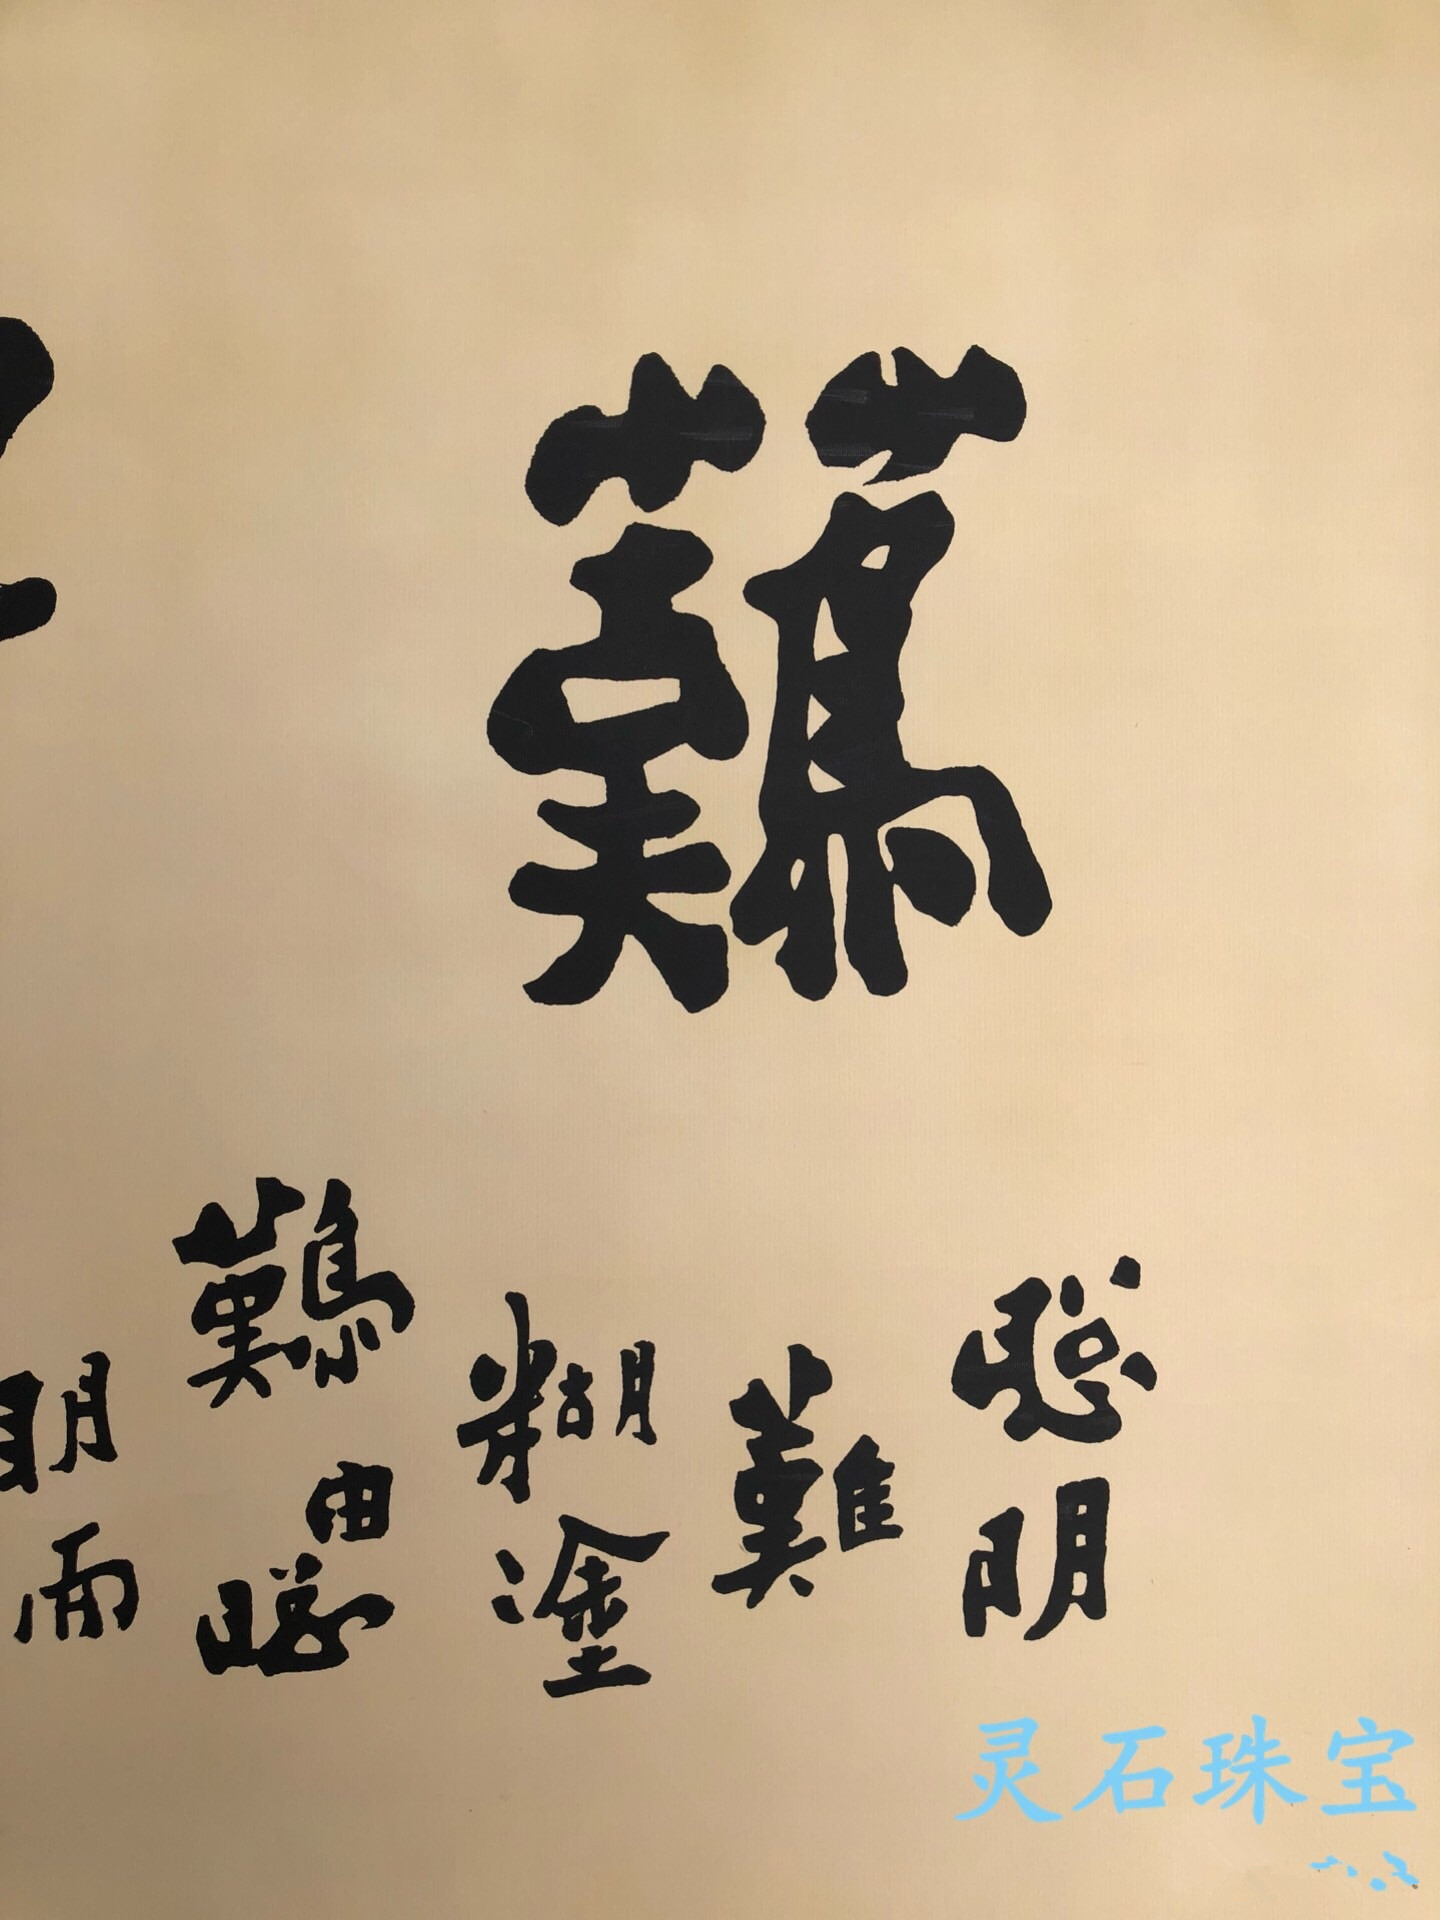 難
聪明
難
糊塗
難由聰
明而
灵石珠宝